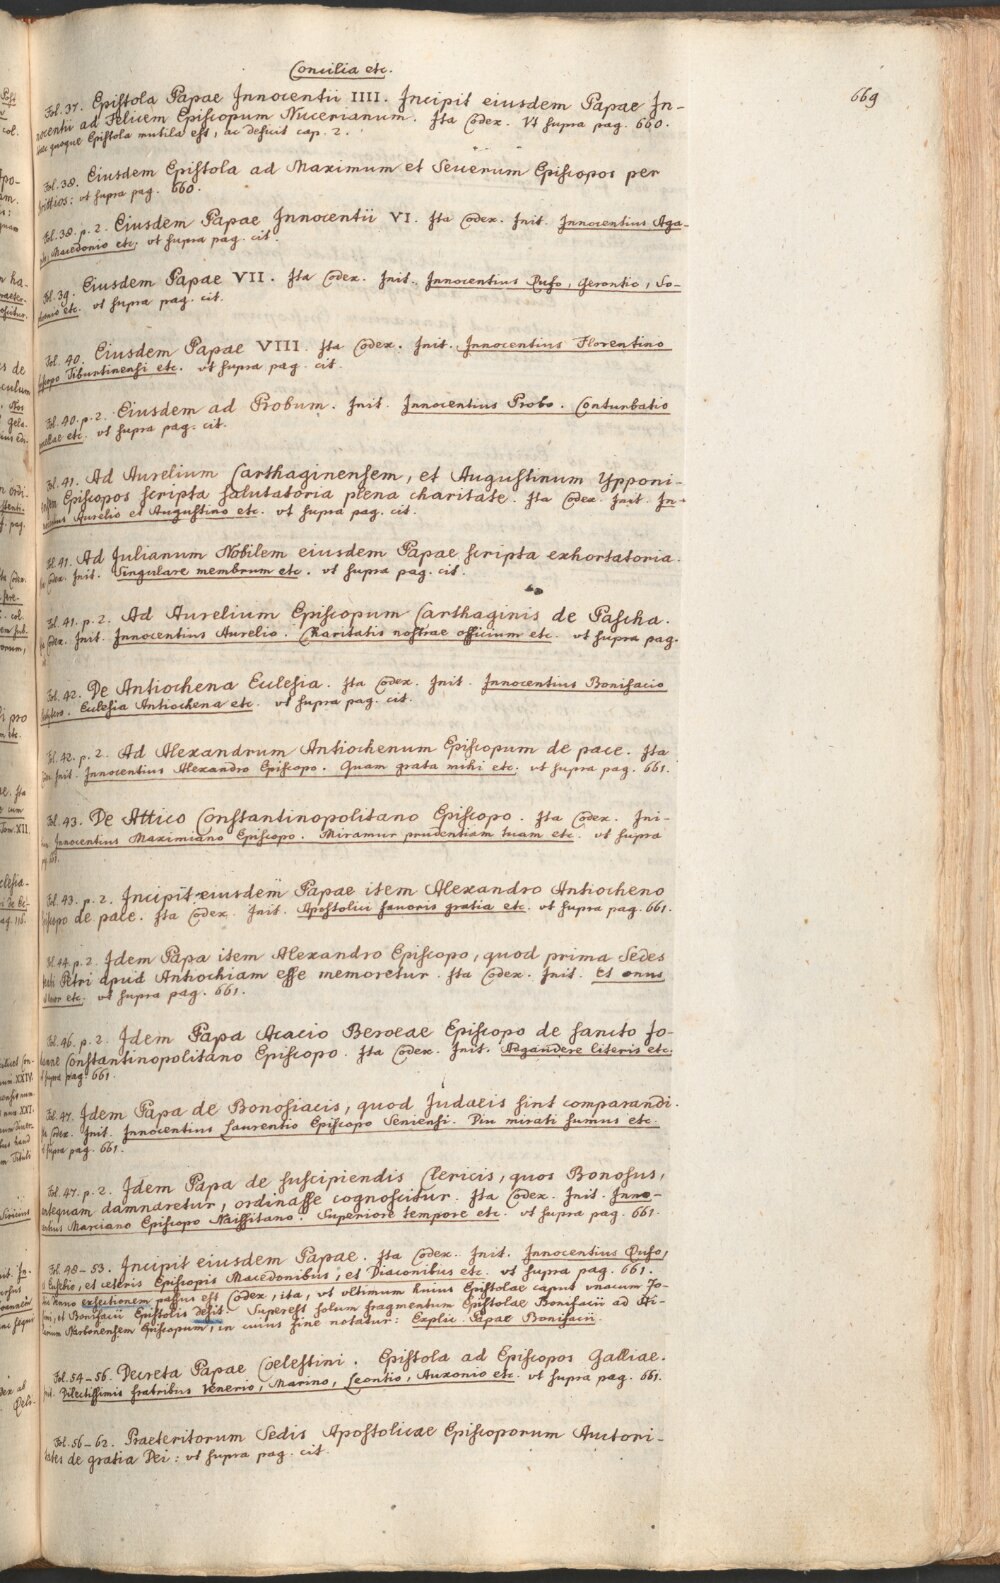 Concilia etc.
669
Fol. 37. Epistola Papae Innocentii IIII. Incipit eiusdem Papae In-
nocentii ad Felicem Episcopum Nucerianum. Ita Codex. Vt supra pag. 660.
quoque Epistola mutila est, ac deficit cap. 2.
Fol. 38. Eiusdem Epistola ad Maximum et Seuerum Episcopos per
Brittios: vt supra pag. 660.
Fol. 38. p. 2. Eiusdem Papae Innocentii VI. Ita Codex. Init. Innocentius Aga-
Macedonio etc. vt supra pag. cit.
Fol. 39. Eiusdem Papae VII. Ita Codex. Init. Innocentius Rufo, Gerontio, So-
etc. vt supra pag. cit.
Fol. 40. Eiusdem Papae VIII. Ita Codex. Init. Innocentius Florentino
Episcopo Tiburtinensi etc. vt supra pag. cit.
Fol. 40. p. 2. Eiusdem ad Probum. Init. Innocentius Probo. Conturbatio
procellae etc. vt supra pag. cit.
Fol. 41. Ad Aurelium Carthaginensem, et Augustinum Ypponi-
ensem Episcopos scripta salutatoria plena charitate. Ita Codex. Init. In-
nocentius Aurelio et Augustino etc. vt supra pag. cit.
Fol. 41. Ad Julianum Nobilem eiusdem Papae scripta exhortatoria.
Ita Codex. Init. Singulare membrum etc. vt supra pag. cit.
Fol. 41. p. 2. Ad Aurelium Episcopum Carthaginis de Pascha.
Ita Codex. Init. Innocentius Aurelio. Charitatis nostrae officium etc. vt supra pag.
Fol. 42. De Antiochena Eclesia. Ita Codex. Init. Innocentius Bonifacio
Eclesia Antiochena etc. vt supra pag. cit.
Fol. 42. p. 2. Ad Alexandrum Antiochenum Episcopum de pace. Ita
Codex. Init. Innocentius Alexandro Episcopo. Quam grata mihi etc. vt supra pag. 661.
Fol. 43. De Attico Constantinopolitano Episcopo. Ita Codex. Ini-
Innocentius Maximiano Episcopo. Miramur prudentiam tuam etc. vt supra
pag. 661.
Fol. 43. p. 2. Incipit eiusdem Papae item Alexandro Antiocheno
Episcopo de pace. Ita Codex. Init. Apostolici fauoris gratia etc. vt supra pag. 661.
Fol. 44. p. 2. Idem Papa item Alexandro Episcopo, quod prima Sedes
beati Petri apud Antiochiam esse memoretur. Ita Codex. Init. Et onus
etc. vt supra pag. 661.
Fol. 46. p. 2. Idem Papa Acacio Beroeae Episcopo de sancto Jo-
hanne Constantinopolitano Episcopo. Ita Codex. Init. Adgaudere literis etc.
vt supra pag. 661.
Fol. 47. Idem Papa de Bonosiacis, quod Judaeis sint comparandi.
Ita Codex. Init. Innocentius Laurentio Episcopo Seniensi. Diu mirati sumus etc.
vt supra pag. 661.
Fol. 47. p. 2. Idem Papa de suscipiendis Clericis, quos Bonosus,
antequam damnaretur, ordinasse cognoscitur. Ita Codex. Init. Inno-
centius Marciano Episcopo Naissitano. Superiore tempore etc. vt supra pag. 661.
Fol. 48-53. Incipit eiusdem Papae. Ita Codex. Init. Innocentius Rufo,
Eusebio, et ceteris Episcopis Macedonibus, et Diaconibus etc. vt supra pag. 661.
exsectionem passus est Codex, ita, vt vltimum huius Epistolae caput vnacum Zo-
simi, et Bonifacii Epistolis desit. Superest solum fragmentum Epistolae Bonifacii ad Hi-
larium Narbonensem Episcopum, in cuius fine notatur: Explic. Papae Bonifacii.
Fol. 54-56. Decreta Papae Coelestini. Epistola ad Episcopos Galliae.
Init. Dilectissimis fratribus Venerio, Marino, Leontio, Auxonio etc. vt supra pag. 661.
Fol. 56-62. Praeteritorum Sedis Apostolicae Episcoporum Auctori-
tates de gratia Dei: vt supra pag. cit.